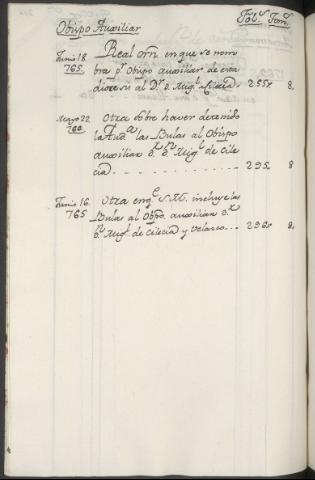 Obispo Auxiliar Fols. Toms.
Junio 18 Real orn. en que se nom
765. bra pr. Obispo auxiliar de esta
diocesis al Dr. d. Migl. Cilicia. 255v 8.
Mayo 22 Otra sobre haver detenido
la Auda. las Bulas al Obispo
auxiliar Dr. Dn. Migl. de Cile
cia. 295. 8
Junio 16 Otra en qe. S.M. incluye las
765 Bulas al Obpo. auxiliar Dr.
Dn. Migl. de Cilicia y Velasco. 296v 8.